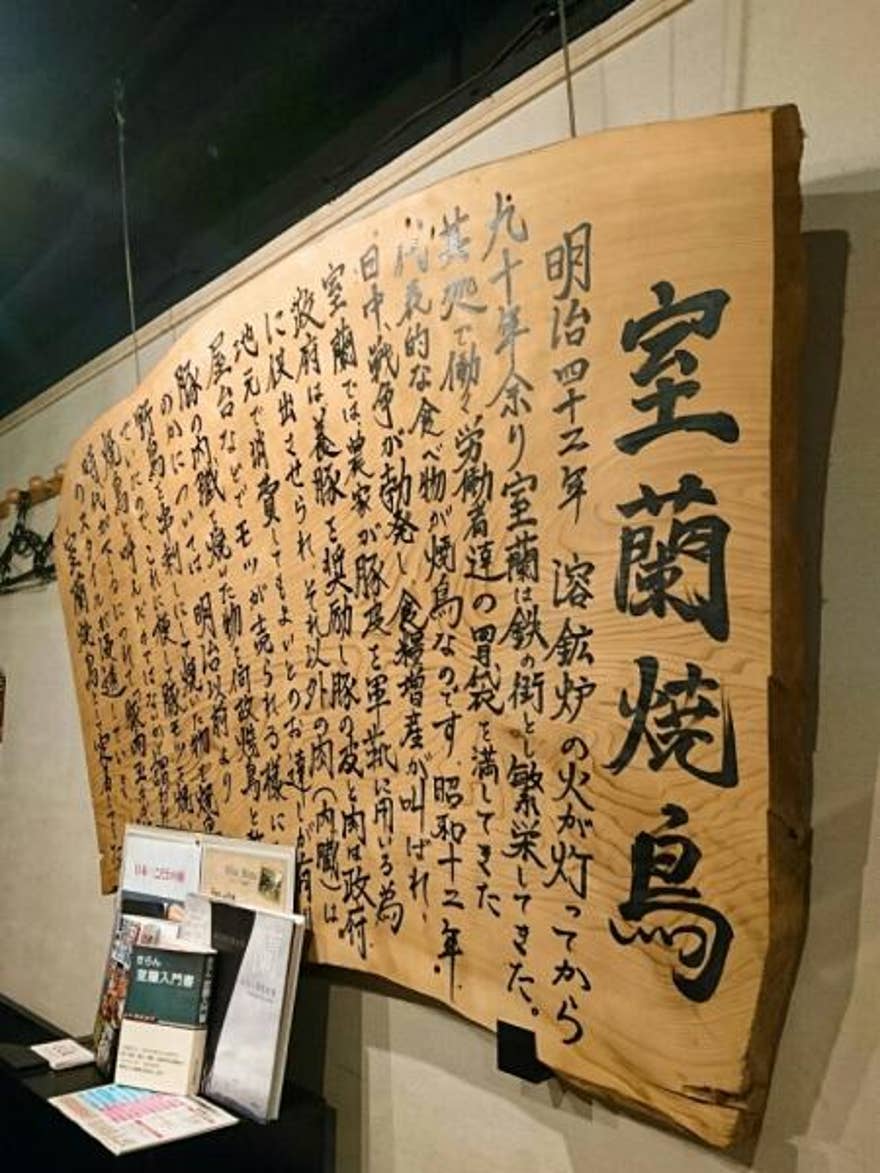 室蘭焼鳥
明治四十二年 溶鉱炉の火が灯ってから
九十年余り室蘭は鉄の街とし繁栄してきた。
其処で働く労働者達の胃袋を満してきた
代表的な食べ物が焼鳥なのです.昭和十二年.
日中、戦争が勃発し 食糧増産が叫ばれ、
室蘭では、農家が豚皮を軍靴に用いる為
政府は養豚を奨励し豚の皮と肉は政府
に供出させられ それ以外の肉(内臓)は
地元で消費してもよいとのお達しが
屋台などでモツが売られる様に
豚の内臓を焼いた物を何故焼鳥と
のかについては 明治以前より
野鳥を串刺しにして焼いた物を焼鳥
ていたので、これに便して豚モツを焼い
焼鳥と呼んだのではないかと
時代が下るにつれて豚肉
のスタイルが
室蘭焼鳥として定着
きらん
室蘭入門書